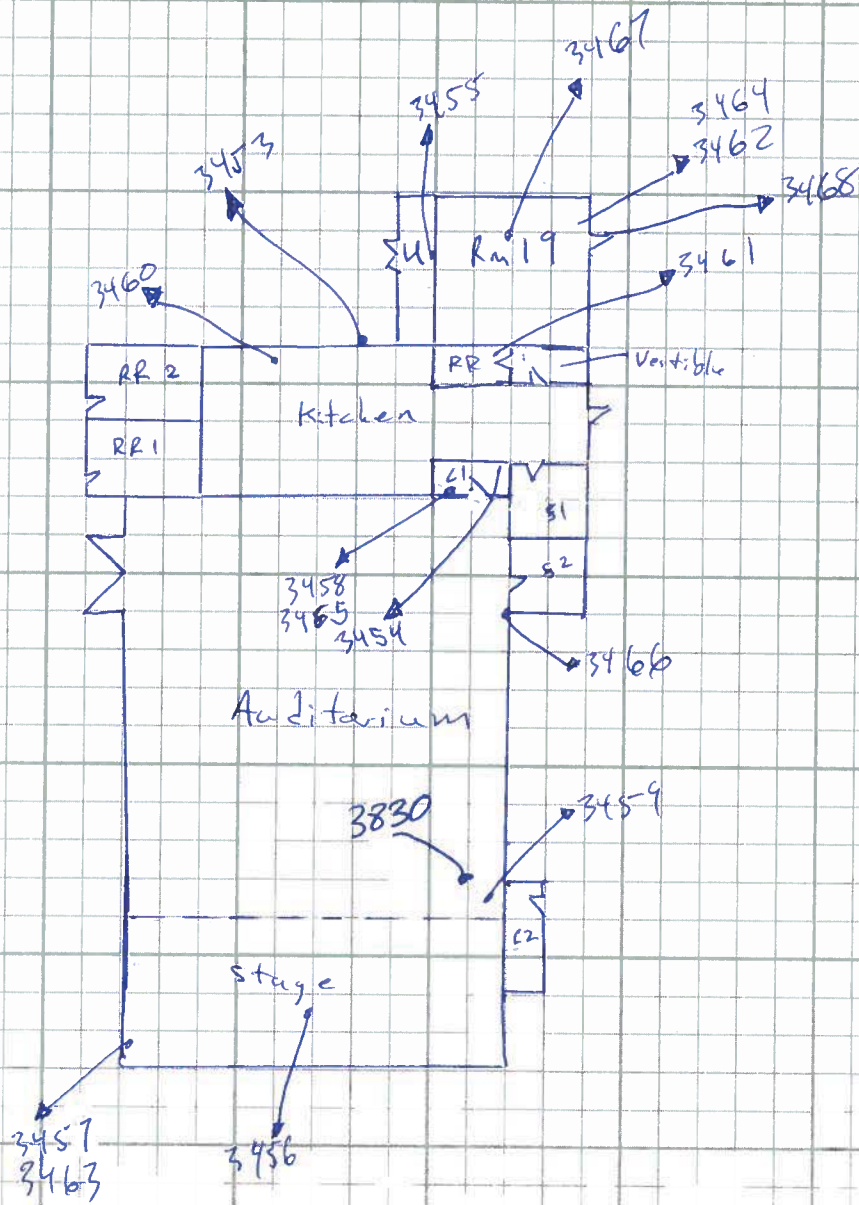 3467
3455
3464
3462
3453
3468
U
Rm 19
3461
3460
RR 2
RR
Vestible
Kitchen
RR 1
C1
S1
S2
3458
3465
3454
3466
Auditorium
3830
3459
C2
Stage
3457
3463
3456